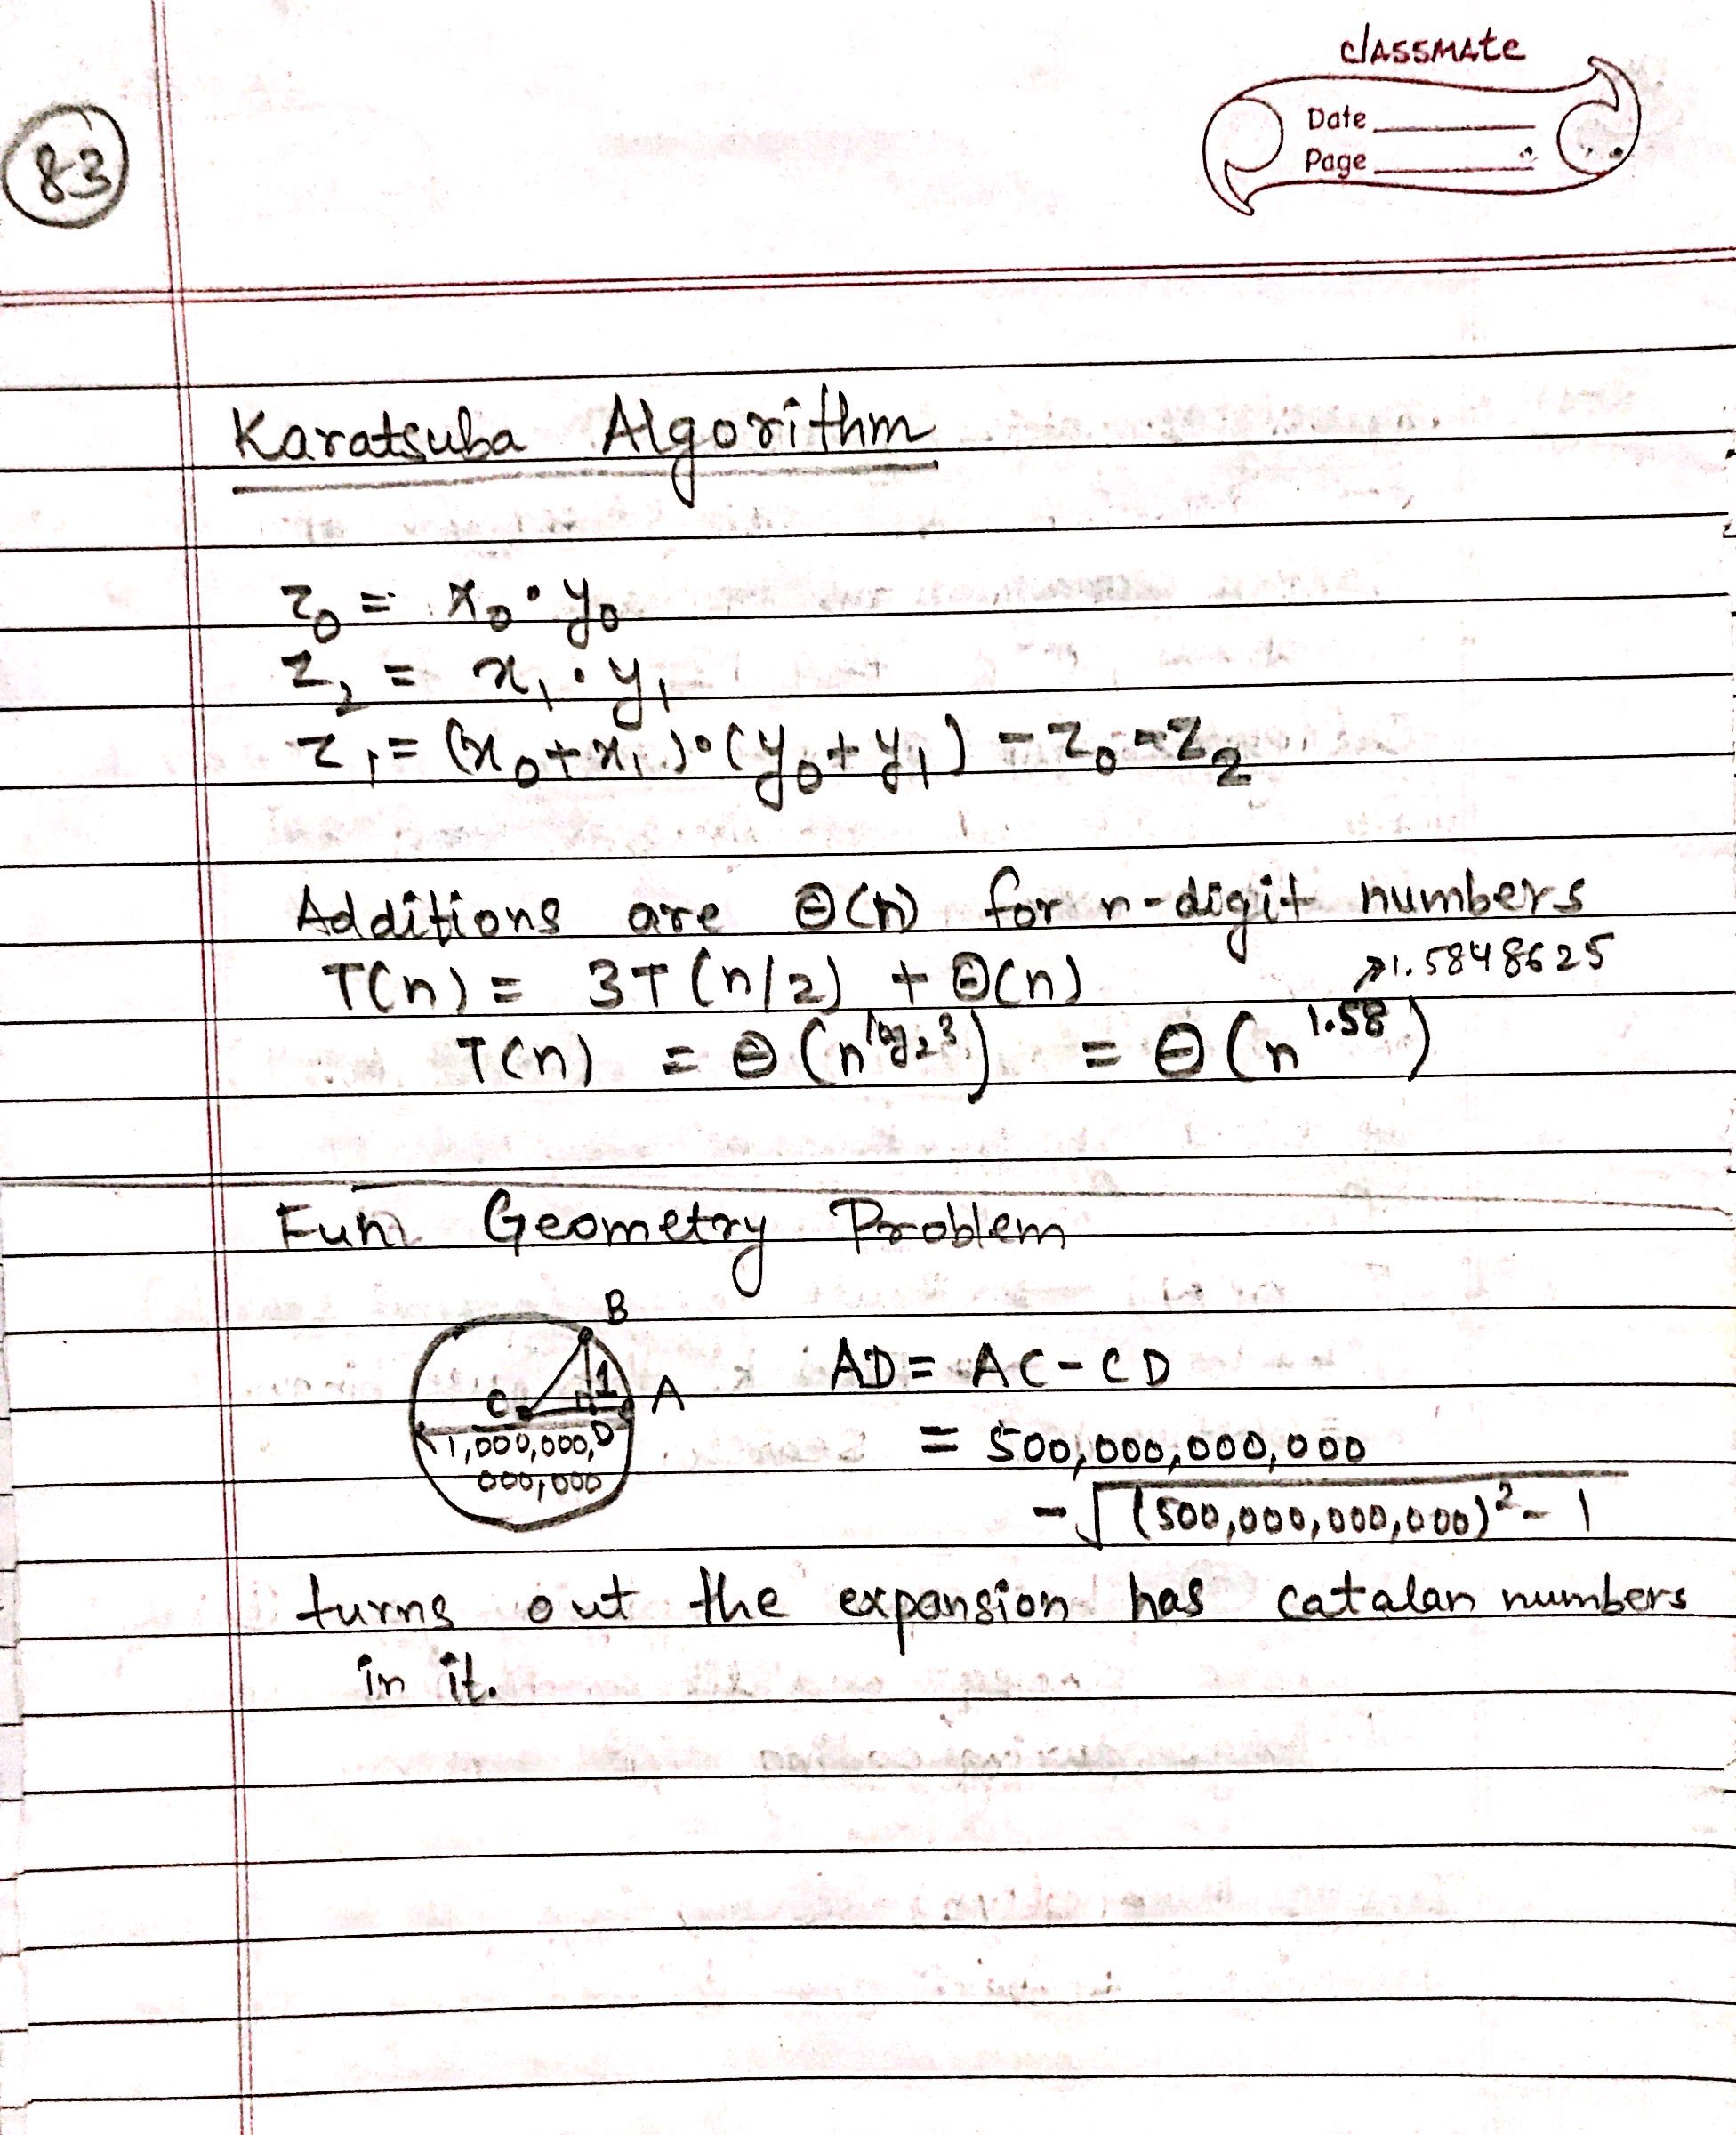 classmate
Date
Page
83
Karatsuba Algorithm
z₀ = x₀·y₀
z₂ = x₁·y₁
z₁ = (x₀+x₁)·(y₀+y₁) - z₀ - z₂
Additions are Θ(n) for n-digit numbers
T(n) = 3T(n/2) + Θ(n)
→1.5848625
T(n) = Θ(n^log₂3) = Θ(n^1.58)
Fun Geometry Problem
B
AD = AC - CD
1
C A
D
1,000,000,
000,000
= 500,000,000,000
-√((500,000,000,000)² - 1
turns out the expansion has catalan numbers
in it.